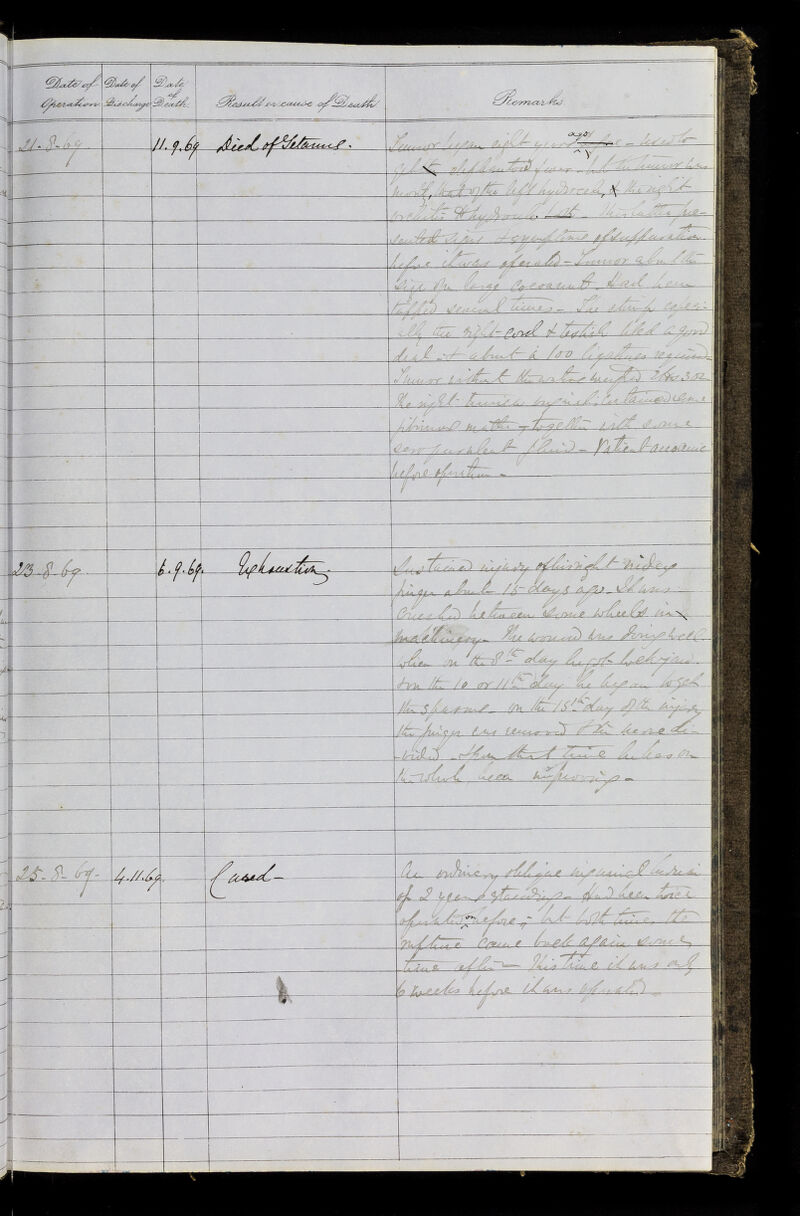 Date of Operation
Date of Discharge
Date of Death
Result or cause of Death
Remarks
21-8-69 11.9.69 Died of Tetanus.
Tumor began eight years ago used to
get fever but the tumor was
most, but of the left hydrocele, & the right
& hydrocele This latter pre-
sented signs & symptoms of suppuration
before it was operated - Tumor about the
size of a large cocoanut. Had been
tapped several times -
ally the right cord & testicle bled a good
deal about a 100 ligatures required
Tumor without the weighed
The right tunica vaginalis contained some
fibrinous matter together with some
sero purulent fluid - Patient anaemic
before operation -
23-8-69 6.9.69. Exhaustion
Sustained injury of his right middle
finger about 15 days ago. It was
crushed between some wheels in
machinery. The wound was doing well
when on the 8th day he got lock-jaw
& on the 10 or 11th day he began to get
the spasms - on the 15th day of the injury
the finger was removed & the nerve di-
-vided - From that time he has on
the whole been improving -
25-8-69- 4.11.69. Cured -
An ordinary oblique inguinal hernia
of 2 years standing - Had been twice
operated on before; but both times the
rupture came back again some
time after - This time it was only
6 weeks before it was operated -